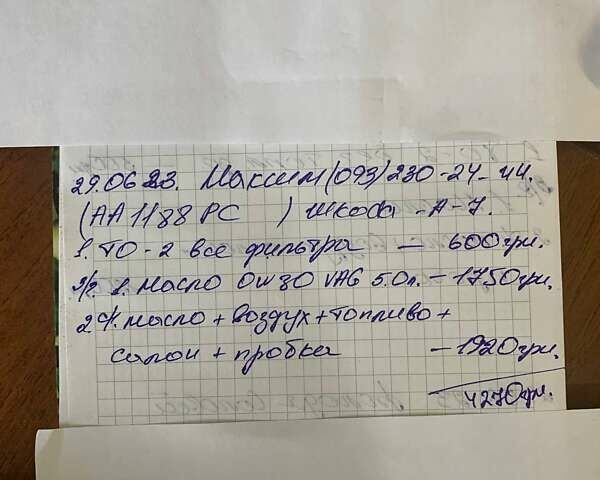 29.06.23. Максим (093) 230-24-44.
(АА 1188 РС ) Шкода -А-7.
1. ТО-2 все фильтра — 600грн.
з/г. 1. Масло 0W30 VAG 5.0л. — 1750грн.
2. Ф. масло + воздух + топливо +
салон + пробка — 1920грн.
4270грн.